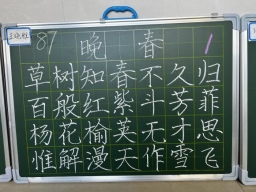 87 晚春 1
草树知春不久归
百般红紫斗芳菲
杨花榆荚无才思
惟解漫天作雪飞